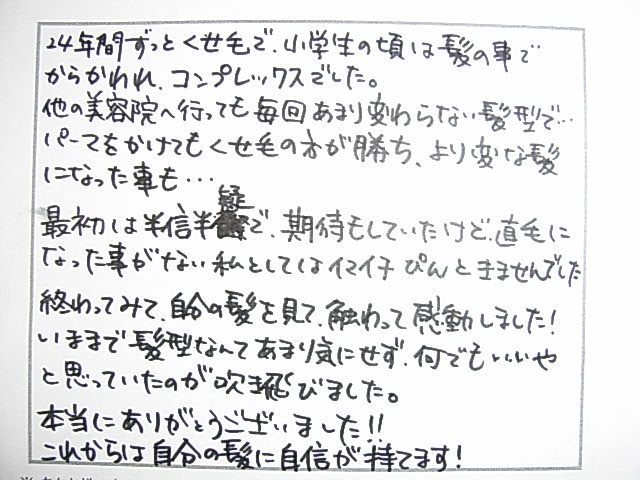 24年間ずっとくせ毛で、小学生の頃は髪の事で
からかわれ、コンプレックスでした。
他の美容院へ行っても毎回あまり変わらない髪型で…
パーマをかけてもくせ毛の方が勝ち、より変な髪
になった事も…
最初は半信半疑で、期待もしていたけど、直毛に
なった事がない私としてはイマイチぴんときませんでした
終わってみて、自分の髪を見て、触わって感動しました!
いままで髪型なんてあまり気にせず、何でもいいや
と思っていたのが吹き飛びました。
本当にありがとうございました!!
これからは自分の髪に自信が持てます!